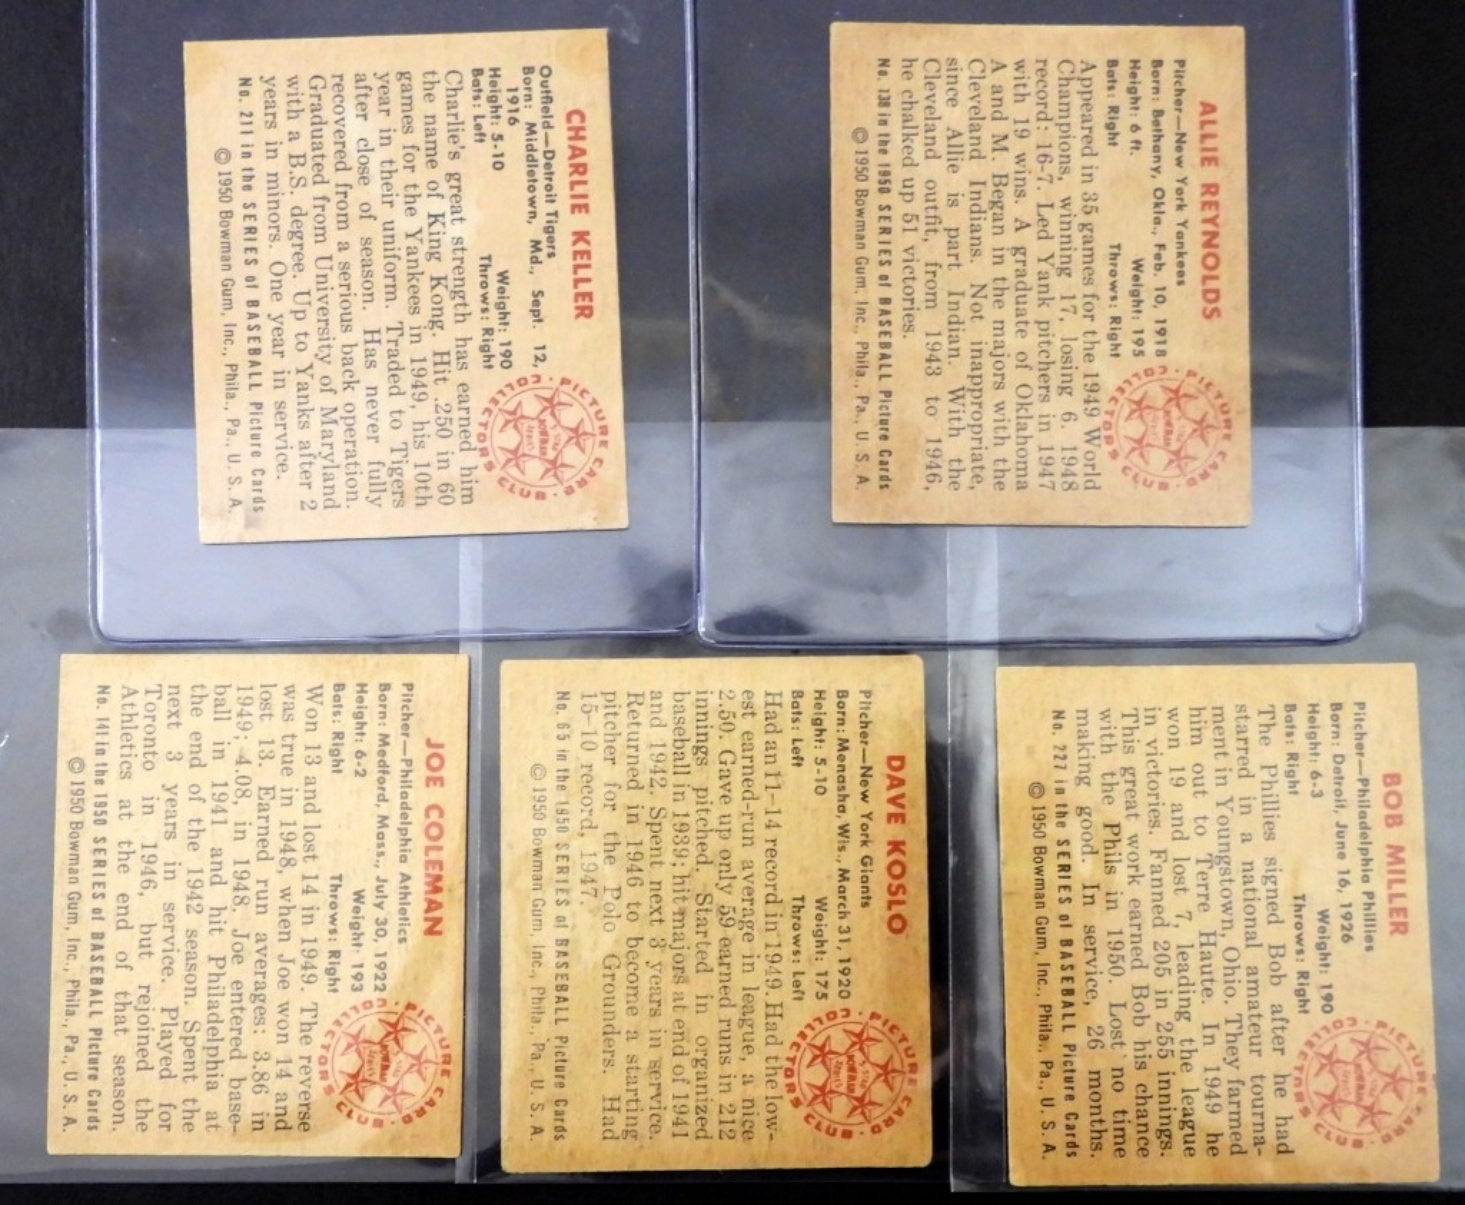 CHARLIE KELLER
Outfield—Detroit Tigers
Born: Middletown, Md., Sept. 12,
1916
Height: 5-10 Weight: 190
Bats: Left Throws: Right
Charlie's great strength has earned him
the name of King Kong. Hit .250 in 60
games for the Yankees in 1949, his 10th
year in their uniform. Traded to Tigers
after close of season. Has never fully
recovered from a serious back operation.
Graduated from University of Maryland
with a B.S. degree. Up to Yanks after 2
years in minors. One year in service.
No. 211 in the SERIES of BASEBALL Picture Cards
© 1950 Bowman Gum, Inc., Phila., Pa., U. S. A.
PICTURE CARD COLLECTORS CLUB
5 STAR BOWMAN
ALLIE REYNOLDS
Pitcher—New York Yankees
Born: Bethany, Okla., Feb. 10, 1918
Height: 6 ft. Weight: 195
Bats: Right Throws: Right
Appeared in 35 games for the 1949 World
Champions, winning 17, losing 6. 1948
record: 16-7. Led Yank pitchers in 1947
with 19 wins. A graduate of Oklahoma
A and M. Began in the majors with the
Cleveland Indians. Not inappropriate,
since Allie is part Indian. With the
Cleveland outfit, from 1943 to 1946,
he chalked up 51 victories.
No. 138 in the 1950 SERIES of BASEBALL Picture Cards
© 1950 Bowman Gum, Inc., Phila., Pa., U. S. A.
PICTURE CARD COLLECTORS CLUB
BOWMAN
JOE COLEMAN
Pitcher—Philadelphia Athletics
Born: Medford, Mass., July 30, 1922
Height: 6-2 Weight: 193
Bats: Right Throws: Right
Won 13 and lost 14 in 1949. The reverse
was true in 1948, when Joe won 14 and
lost 13. Earned run averages: 3.86 in
1949; 4.08, in 1948. Joe entered base-
ball in 1941 and hit Philadelphia at
the end of the 1942 season. Spent the
next 3 years in service. Played for
Toronto in 1946, but rejoined the
Athletics at the end of that season.
No. 141 in the 1950 SERIES of BASEBALL Picture Cards
© 1950 Bowman Gum, Inc., Phila., Pa., U. S. A.
PICTURE CARD COLLECTORS CLUB
BOWMAN
DAVE KOSLO
Pitcher—New York Giants
Born: Menasha, Wis., March 31, 1920
Height: 5-10 Weight: 175
Bats: Left Throws: Left
Had an 11-14 record in 1949. Had the low-
est earned-run average in league, a nice
2.50. Gave up only 59 earned runs in 212
innings pitched. Started in organized
baseball in 1939; hit majors at end of 1941
and 1942. Spent next 3 years in service.
Returned in 1946 to become a starting
pitcher for the Polo Grounders. Had
15-10 record, 1947.
No. 65 in the 1950 SERIES of BASEBALL Picture Cards
© 1950 Bowman Gum, Inc., Phila., Pa., U. S. A.
PICTURE CARD COLLECTORS CLUB
BOWMAN
BOB MILLER
Pitcher—Philadelphia Phillies
Born: Detroit, June 16, 1926
Height: 6-3 Weight: 190
Bats: Right Throws: Right
The Phillies signed Bob after he had
starred in a national amateur tourna-
ment in Youngstown, Ohio. They farmed
him out to Terre Haute. In 1949 he
won 19 and lost 7, leading the league
in victories. Fanned 205 in 255 innings.
This great work earned Bob his chance
with the Phils in 1950. Lost no time
making good. In service, 26 months.
No. 227 in the SERIES of BASEBALL Picture Cards
© 1950 Bowman Gum, Inc., Phila., Pa., U. S. A.
PICTURE CARD COLLECTORS CLUB
BOWMAN